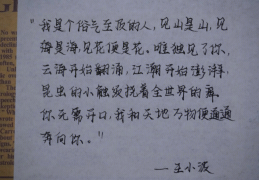 "我是个俗气至顶的人,见山是山,见
海是海,见花便是花。唯独见了你,
云海开始翻涌,江潮开始澎湃,
昆虫的小触须挠着全世界的痒。
你无需开口,我和天地万物便通通
奔向你。"
——王小波